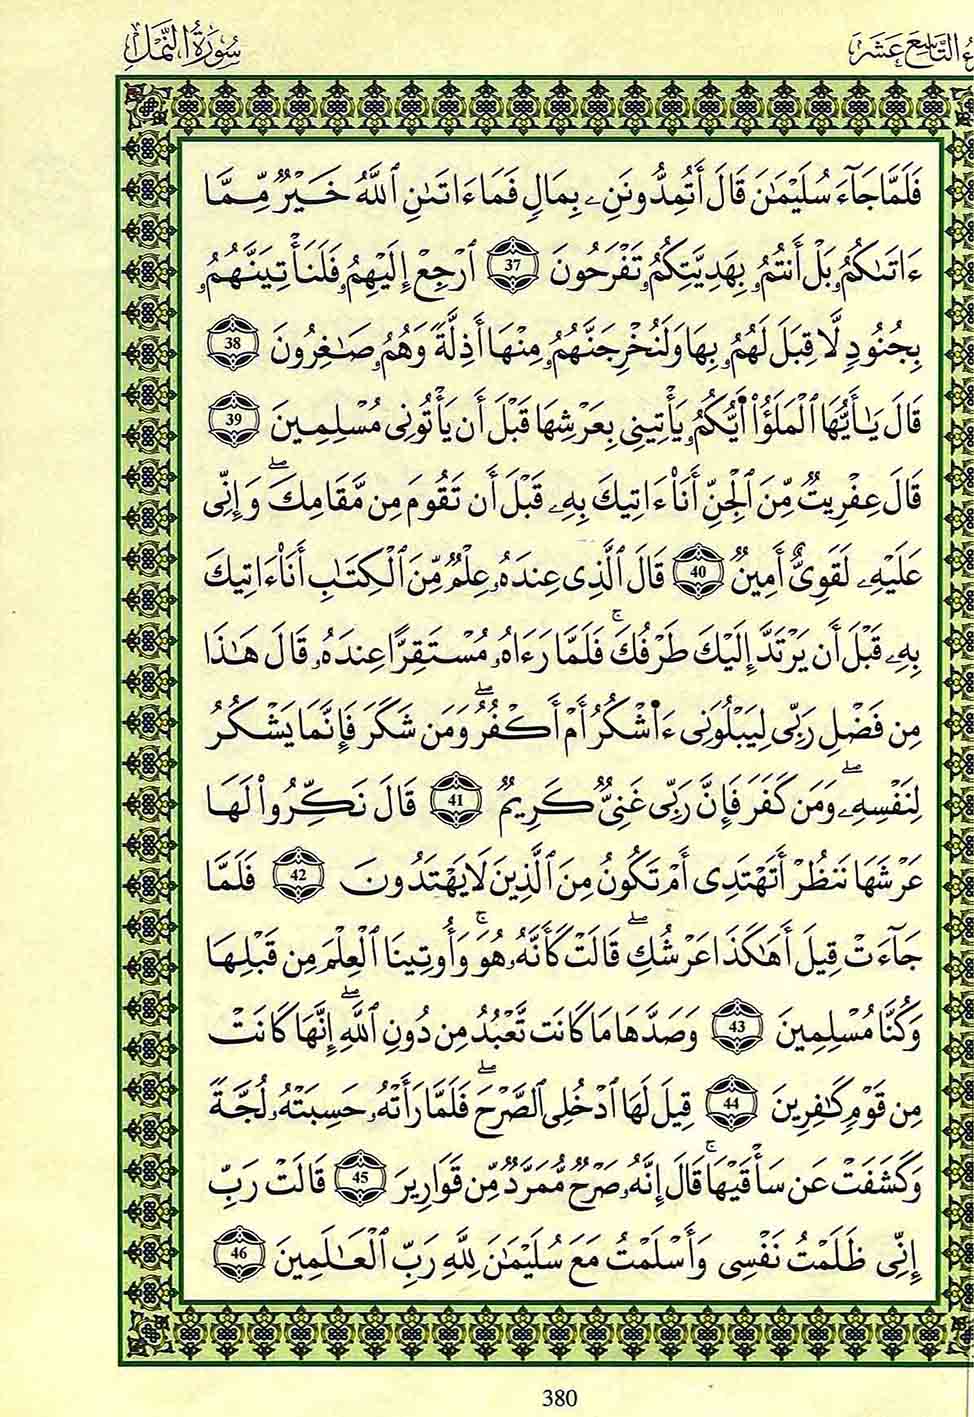 سُورَةُ النَّمْلِ
ءُ التَّاسِعَ عَشَرَ
فَلَمَّا جَآءَ سُلَيْمَـٰنَ قَالَ أَتُمِدُّونَنِۦ بِمَالٍ فَمَا ءَاتَىٰنِ ٱللَّهُ خَيْرٌ مِّمَّا
ءَاتَىٰكُمُۥ بَلْ أَنتُمُۥ بِهَدِيَّتِكُمُۥ تَفْرَحُونَ 37 ٱرْجِعْ إِلَيْهِمُۥ فَلَنَأْتِيَنَّهُمُۥ
بِجُنُودٍ لَّا قِبَلَ لَهُمُۥ بِهَا وَلَنُخْرِجَنَّهُمُۥ مِنْهَا أَذِلَّةً وَهُمُۥ صَـٰغِرُونَ 38
قَالَ يَـٰأَيُّهَا ٱلْمَلَؤُا۟ أَيُّكُمُۥ يَأْتِينِى بِعَرْشِهَا قَبْلَ أَن يَأْتُونِى مُسْلِمِينَ 39
قَالَ عِفْرِيتٌ مِّنَ ٱلْجِنِّ أَنَا۠ ءَاتِيكَ بِهِۦ قَبْلَ أَن تَقُومَ مِن مَّقَامِكَ ۖ وَإِنِّى
عَلَيْهِۦ لَقَوِىٌّ أَمِينٌ 40 قَالَ ٱلَّذِى عِندَهُۥ عِلْمٌ مِّنَ ٱلْكِتَـٰبِ أَنَا۠ ءَاتِيكَ
بِهِۦ قَبْلَ أَن يَرْتَدَّ إِلَيْكَ طَرْفُكَ ۚ فَلَمَّا رَءَاهُۥ مُسْتَقِرًّا عِندَهُۥ قَالَ هَـٰذَا
مِن فَضْلِ رَبِّى لِيَبْلُوَنِى ءَا۬شْكُرُ أَمْ أَكْفُرُ ۖ وَمَن شَكَرَ فَإِنَّمَا يَشْكُرُ
لِنَفْسِهِۦ ۖ وَمَن كَفَرَ فَإِنَّ رَبِّى غَنِىٌّ كَرِيمٌ 41 قَالَ نَكِّرُوا۟ لَهَا
عَرْشَهَا نَنظُرْ أَتَهْتَدِى أَمْ تَكُونُ مِنَ ٱلَّذِينَ لَا يَهْتَدُونَ 42 فَلَمَّا
جَآءَتْ قِيلَ أَهَـٰكَذَا عَرْشُكِ ۖ قَالَتْ كَأَنَّهُۥ هُوَ ۚ وَأُوتِينَا ٱلْعِلْمَ مِن قَبْلِهَا
وَكُنَّا مُسْلِمِينَ 43 وَصَدَّهَا مَا كَانَت تَّعْبُدُ مِن دُونِ ٱللَّهِ ۖ إِنَّهَا كَانَتْ
مِن قَوْمٍ كَـٰفِرِينَ 44 قِيلَ لَهَا ٱدْخُلِى ٱلصَّرْحَ ۖ فَلَمَّا رَأَتْهُۥ حَسِبَتْهُۥ لُجَّةً
وَكَشَفَتْ عَن سَأْقَيْهَا ۚ قَالَ إِنَّهُۥ صَرْحٌ مُّمَرَّدٌ مِّن قَوَارِيرَ 45 قَالَتْ رَبِّ
إِنِّى ظَلَمْتُ نَفْسِى وَأَسْلَمْتُ مَعَ سُلَيْمَـٰنَ لِلَّهِ رَبِّ ٱلْعَـٰلَمِينَ 46
380